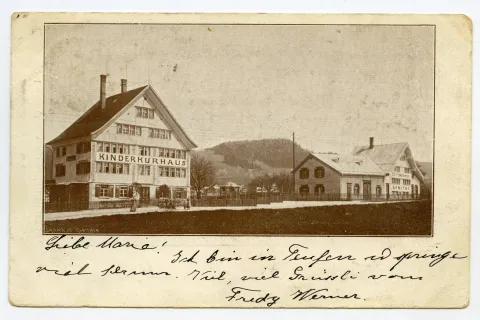 KINDERKURHAUS
Liebe Marie!
Ich bin in Teufen u springe
viel herum. Viel, viel Grüssli vom
Fredy Werner.